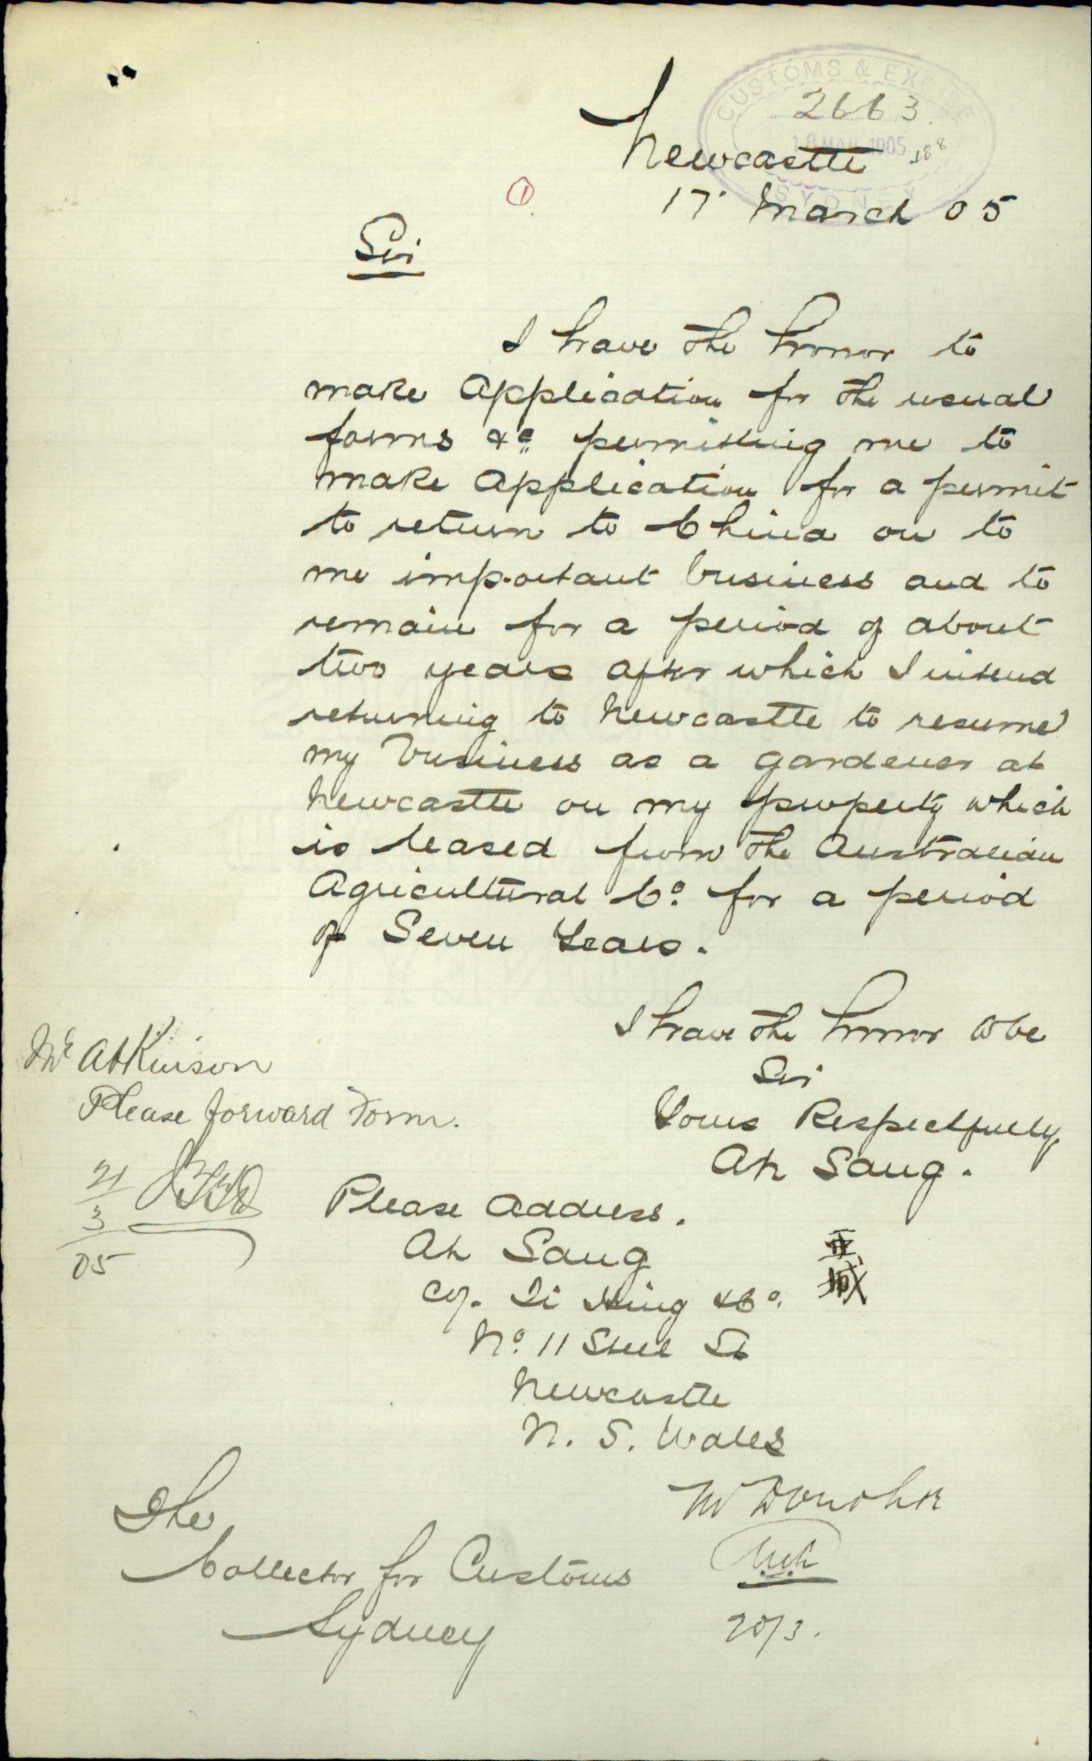 CUSTOMS & EXCISE
2663.
Newcastle
SYDNEY
17 March 05
1
Sir
I have the honor to
make application for the usual
forms &c permitting me to
make application for a permit
to return to China on to
me important business and to
remain for a period of about
two years after which I intend
returning to Newcastle to resume
my business as a gardener at
Newcastle on my property which
is leased from the Australian
Agricultural Co. for a period
of Seven Years.
I have the honor to be
Sir
Yours Respectfully
Ah Sang.
Mr Atkinson
Please forward Form.
21
3
05
Please address.
Ah Sang
No 11 Steel St
Newcastle
N. S. Wales
The
Collector for Customs
Sydney
Mr Donohoe
20/3.